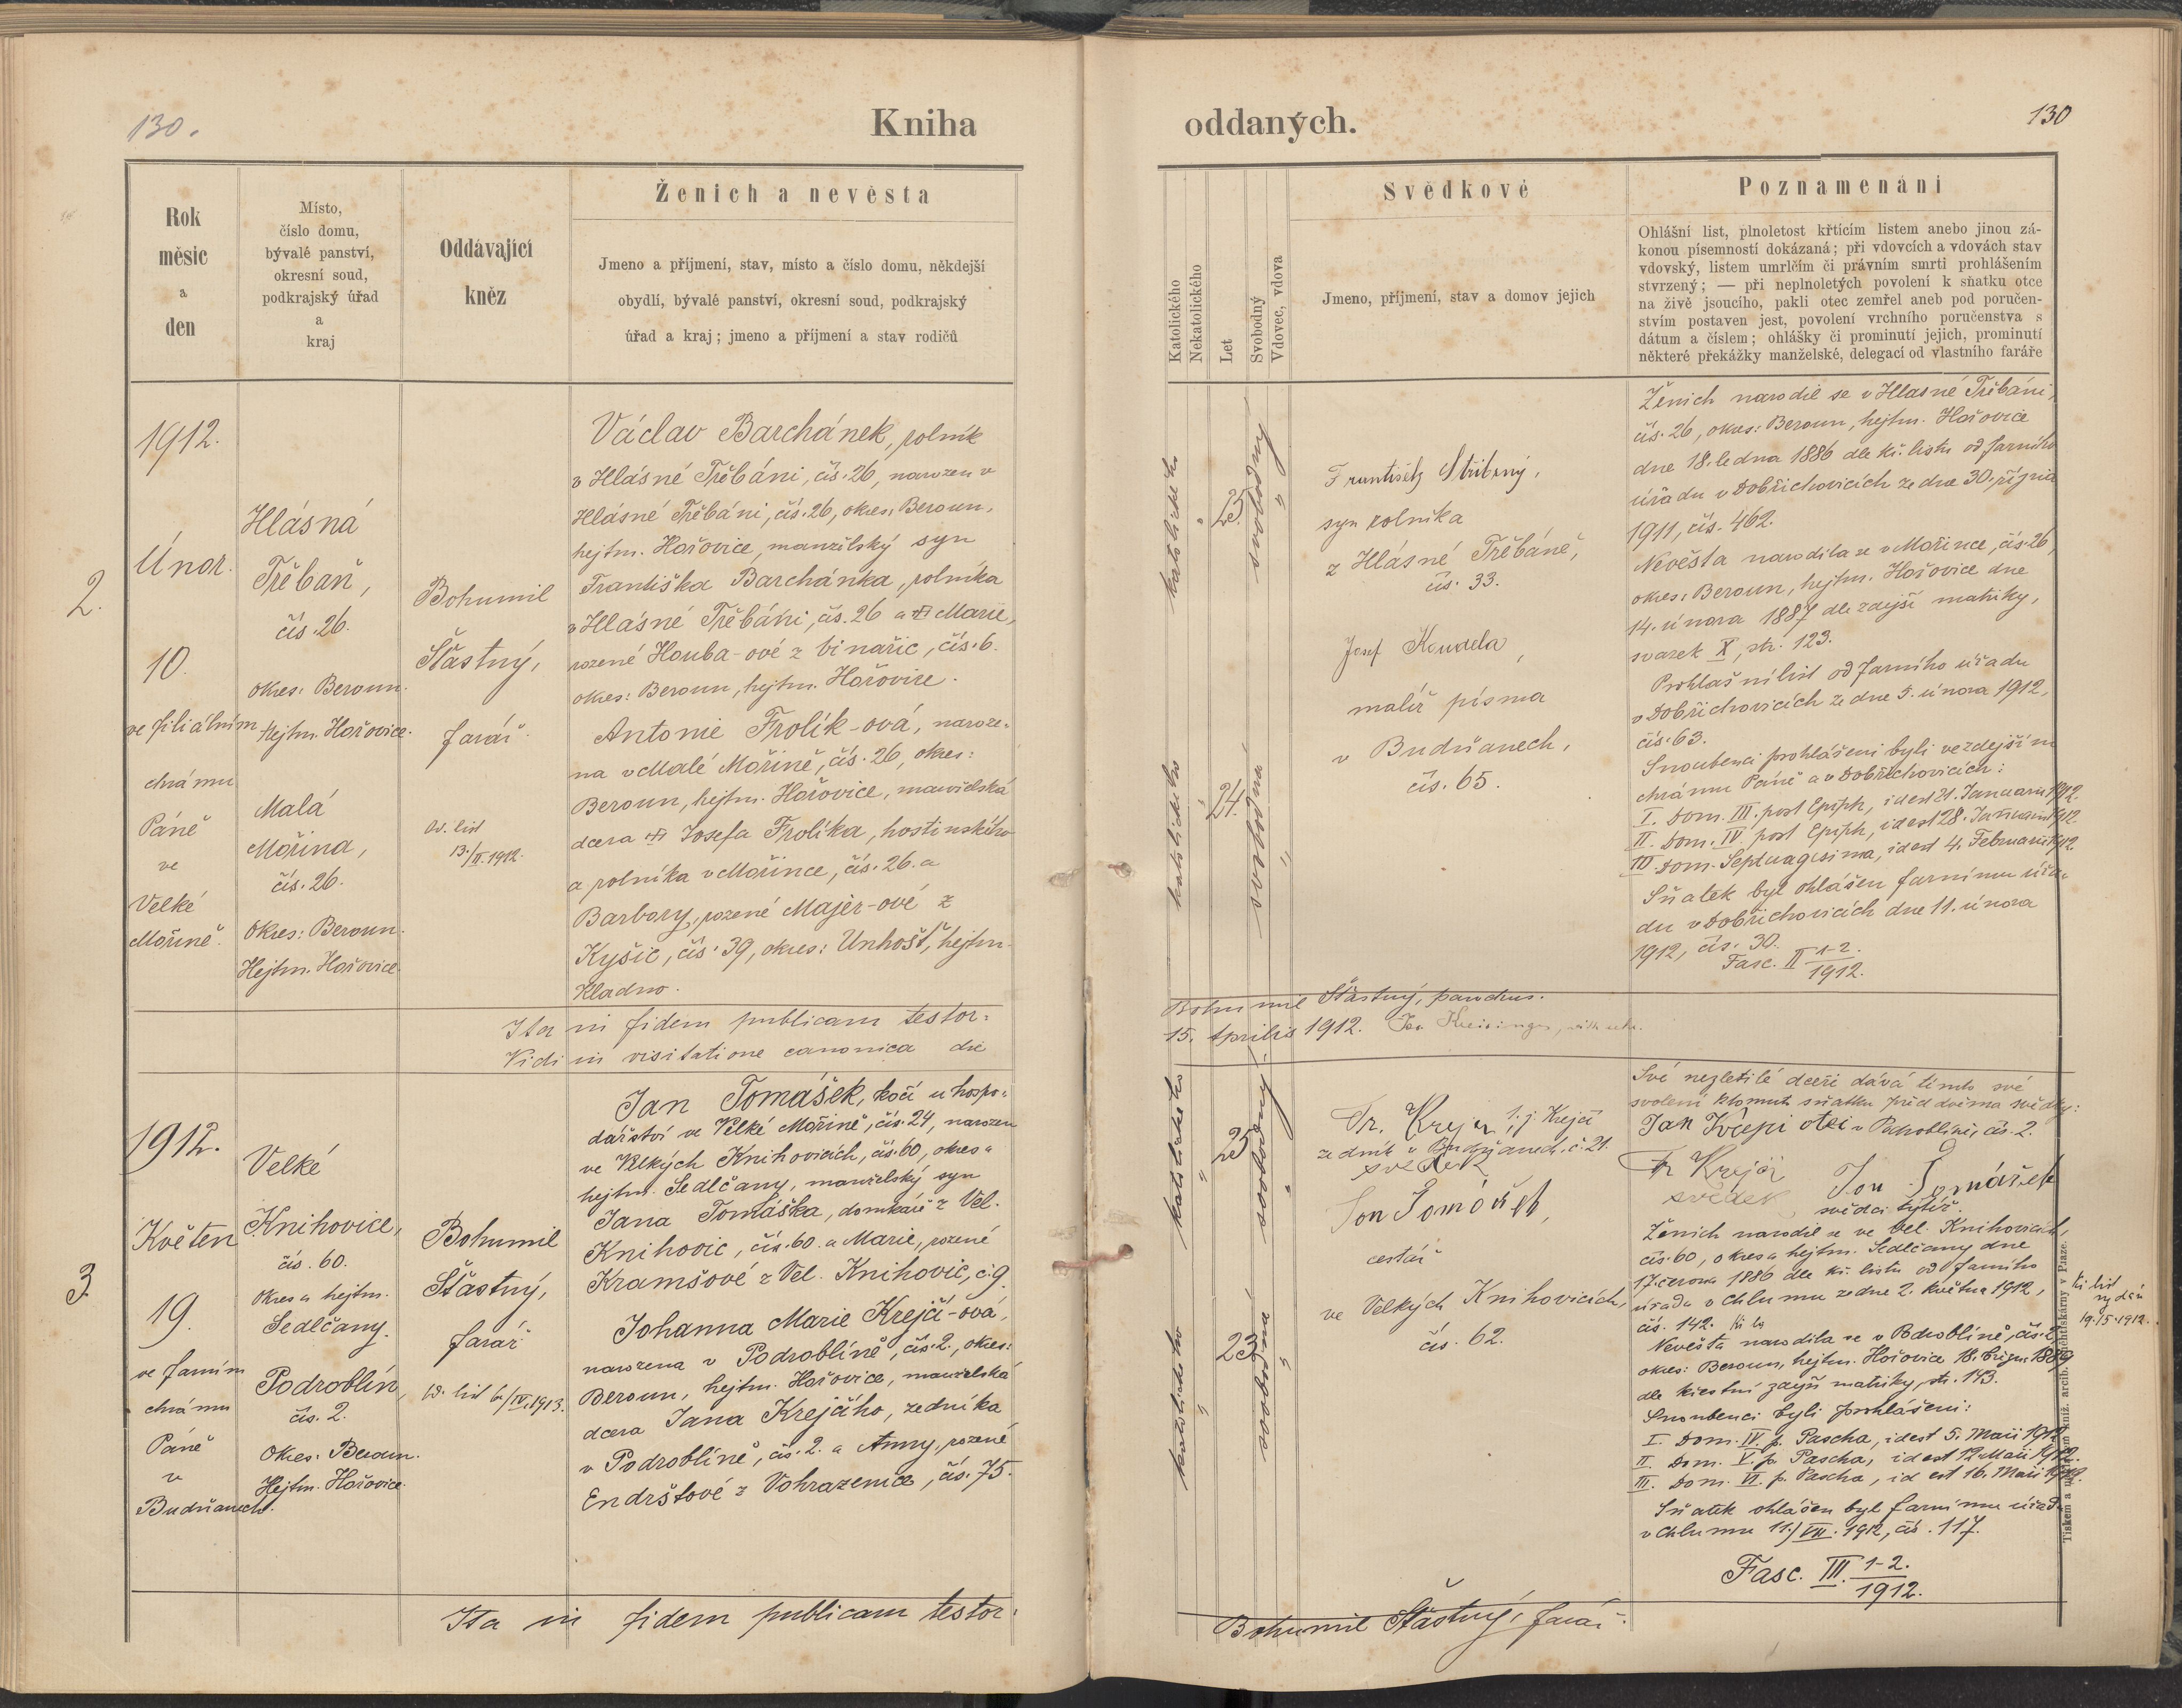 130.
Kniha
oddaných.
130
Rok
měsíc
a
den
Místo,
číslo domu,
bývalé panství,
okresní soud,
podkrajský úřad
a
kraj
Oddávající
kněz
Ženich a nevěsta
Jmeno a příjmení, stav, místo a číslo domu, někdejší
obydlí, bývalé panství, okresní soud, podkrajský
úřad a kraj; jmeno a příjmení a stav rodičů
Katolického
Nekatolického
Let
Svobodný
Vdovec, vdova
Svědkové
Jmeno, příjmení, stav a domov jejich
Poznamenání
Ohlášní list, plnoletost křticím listem anebo jinou zá-
konou písemností dokázaná; při vdovcích a vdovách stav
vdovský, listem umrlčím či právním smrti prohlášením
stvrzený; — při neplnoletých povolení k sňatku otce
na živě jsoucího, pakli otec zemřel aneb pod poručen-
stvím postaven jest, povolení vrchního poručenstva s
dátum a číslem; ohlášky či prominutí jejich, prominutí
některé překážky manželské, delegací od vlastního faráře
2.
1912.
Únor.
10.
ve filiálním
chrámu
Páně
ve
Velké
Mořině.
Hlásná
Třebaň,
čís. 26.
okres: Beroun.
Hejtm. Hořovice.
Malá
Mořina,
čís. 26.
Okres: Beroun.
Hejtm. Hořovice.
Bohumil
Šťastný,
farář.
Od. list
13./II.1912.
Václav Barchánek, rolník
v Hlásné Třebáni, čís. 26, narozen v
Hlásné Třebáni, čís. 26, okres: Beroun,
hejtm. Hořovice, manželský syn
Františka Barchánka, rolníka
v Hlásné Třebáni, čís. 26 a Marie,
rozené Houba-ové z Vinařic, čís. 6.
okres: Beroun, hejtm. Hořovice.
Antonie Frolík-ová, naroze-
na v Malé Mořině, čís. 26, okres:
Beroun, hejtm. Hořovice, manželská
dcera Josefa Frolíka, hostinského
a rolníka v Mořince, čís. 26. a
Barbory, rozené Majer-ové z
Kyšic, čís. 39, okres: Unhošť, hejtm.
Kladno.
katolického
"
25.
svobodný
"
katolického
"
24.
svobodná
"
František Stříbrný,
syn rolníka
z Hlásné Třebáně,
čís. 33.
Josef Koudela,
malíř písma
v Budňanech,
čís. 65.
Ženich narodil se v Hlasné Třebáni,
čís. 26, okres: Beroun, hejtm. Hořovice
dne 18. ledna 1886 dle kř. listu od farního
úřadu v Dobřichovicích ze dne 30. října
1911, čís. 462.
Nevěsta narodila se v Mořince, čís. 26,
okres: Beroun, hejtm. Hořovice dne
14. února 1887 dle zdejší matriky,
svazek X, str. 123.
Prohlašní list od farního úřadu
v Dobřichovicích ze dne 5. února 1912,
čís. 63.
Snoubenci prohlášeni byli ve zdejším
chrámu Páně a v Dobřichovicích:
I. Dom. III. post Epiph, id est 21. Januarii 1912.
II. Dom. IV. post Epiph, id est 28. Januarii 1912.
III. Dom. Septuagesima, id est 4. Februarii 1912.
Sňatek byl ohlášen farnímu úřa-
du v Dobřichovicích dne 11. února
1912, čís. 30.
Fasc. II 1-2.
1912.
Ita in fidem publicam testor:
Bohumil Šťastný, parochus.
Vidi in visitatione canonica die
15. Aprilis 1912.
3.
1912.
Květen
19.
ve farním
chrámu
Páně
v
Budňanech.
Velké
Knihovice,
čís. 60.
Okres a hejtm.
Sedlčany.
Podroblín,
čís. 2.
Okres: Beroun.
Hejtm. Hořovice.
Bohumil
Šťastný,
farář.
Od. list 6/IV.1913.
Jan Tomášek, kočí u hospo-
dářství ve Velké Mořině, čís. 24, narozen
ve Velkých Knihovicích, čís. 60, okres a
hejtm. Sedlčany, manželský syn
Jana Tomáška, domkáře z Vel.
Knihovic, čís. 60. a Marie, rozené
Kramšové z Vel. Knihovic, č. 9.
Johanna Marie Krejčí-ová,
narozena v Podroblíně, čís. 2., okres:
Beroun, hejtm. Hořovice, manželská
dcera Jana Krejčího, zedníka
v Podroblíně, čís. 2. a Anny, rozené
Endrštové z Vohrazenice, čís. 75.
katolického
"
25
svobodný
"
katolického
"
23
svobodná
"
Fr. Krejčí, Krejčí
zedník v Budňanech, č. 21.
svědek
Jan Tomášek,
cestář
ve Velkých Knihovicích,
čís. 62.
Své nezletilé dceři dává tímto své
svolení k tomuto sňatku před dvěma svědky:
Jan Krejčí otec v Podroblíně, čís. 2.
Fr Krejčí
svědek
Jan Tomášek
svědci týtéž.
Ženich narodil se ve Vel. Knihovicích,
čís. 60, okres a hejtm. Sedlčany dne
17. června 1886 dle kř. listu od farního
úřadu v Chlumu ze dne 2. května 1912,
čís. 142.
Nevěsta narodila se v Podroblíně, čís. 2,
okres: Beroun, hejtm. Hořovice 18. 1889
dle křestní zdejší matriky, str. 143.
Snoubenci byli prohlášeni:
I. Dom. IV. p. Pascha, id est 5. Maii 1912.
II. Dom. V. p. Pascha, id est 12. Maii 1912.
III. Dom. VI. p. Pascha, id est 16. Maii 1912.
Sňatek ohlášen byl farnímu úřadu
v Chlumu 11./VII. 1912, čís. 117.
Fasc. III. 1-2.
1912.
Kř. list
vydán
19./5.1912.
Ita in fidem publicam testor:
Bohumil Šťastný, farář.